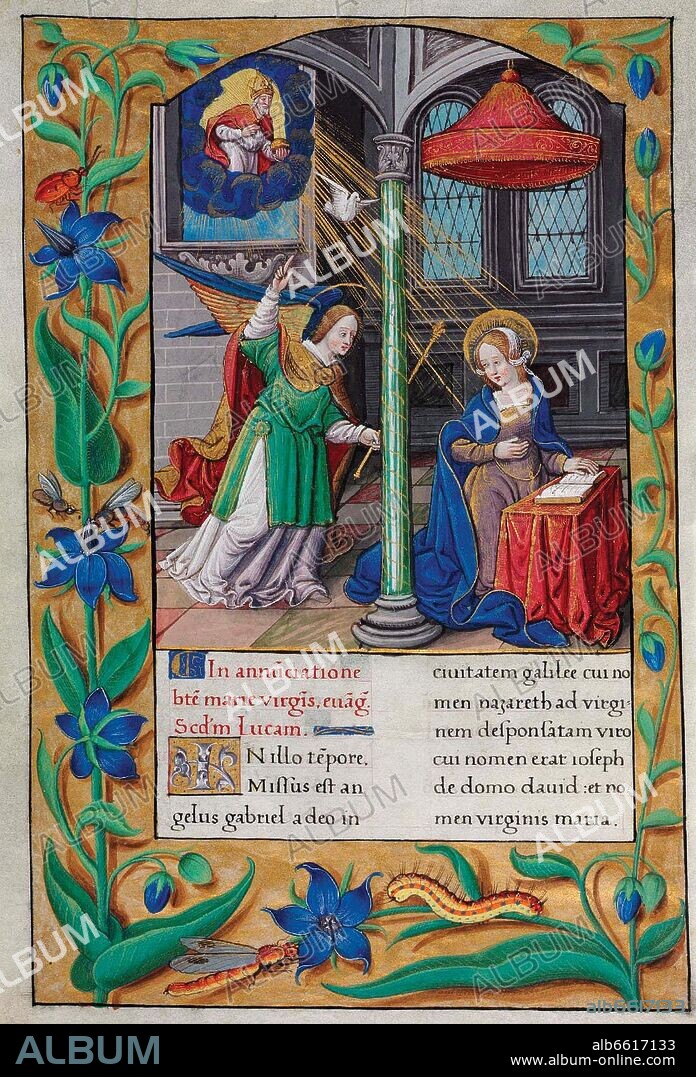 In annũciatione
bte᷈ marie virgĩs, euãg̃.
Scd᷈m Lucam.
IN illo tẽpore.
Missus est an
gelus gabriel a deo in
ciuitatem galilee cui no
men nazareth ad virgi-
nem desponsatam viro
cui nomen erat ioseph
de domo dauid : et no
men virginis maria.
ALBUM
alb6617133
ALBUM
alb6617133
www.album-online.com